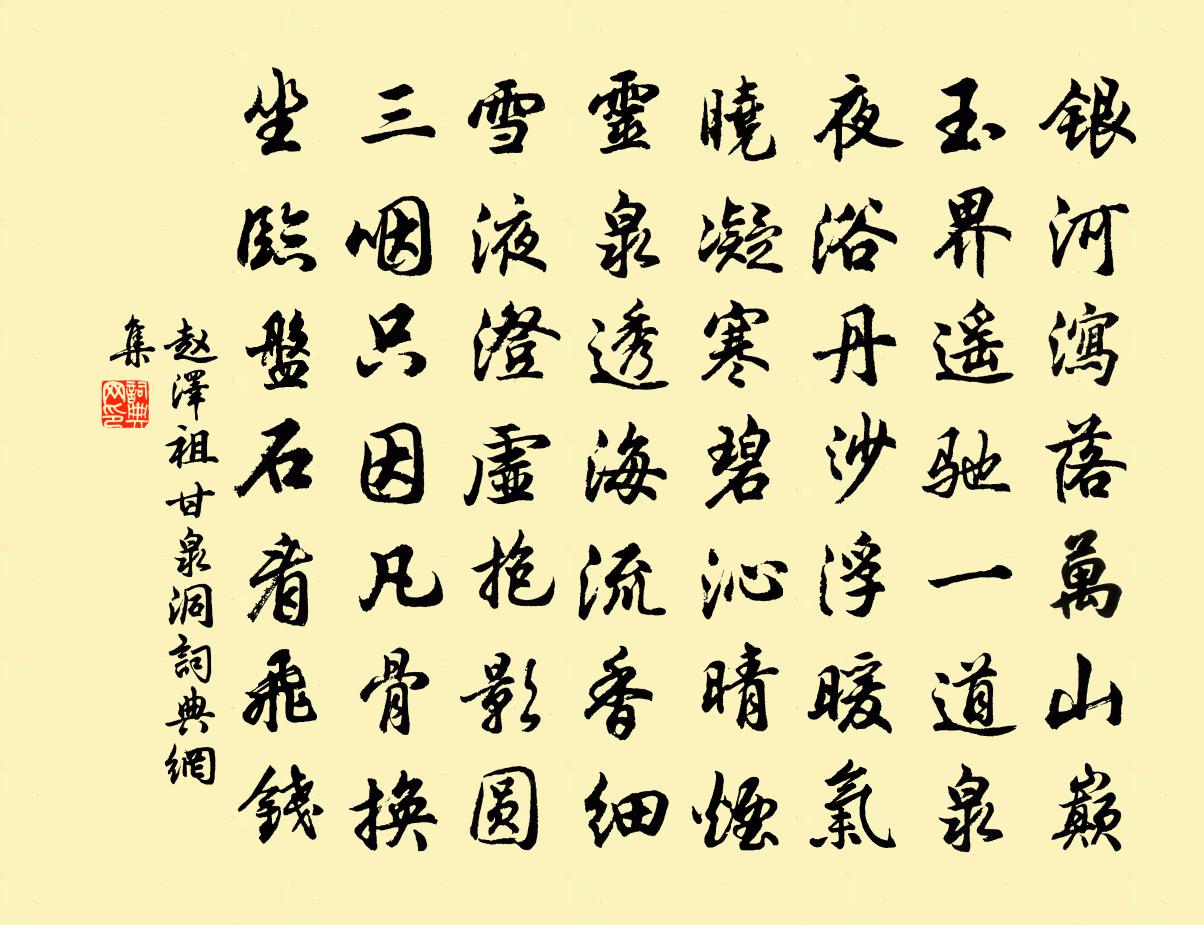 銀河瀉落萬山巔
玉界遥馳一道泉
夜浴丹沙浮暖氣
曉凝寒碧沁晴煙
靈泉透海流香細
雪液澄虛抱影圓
三咽只因凡骨換
坐臨盤石看飛錢
赵澤祖甘泉洞詞典網
集
詞典
网印